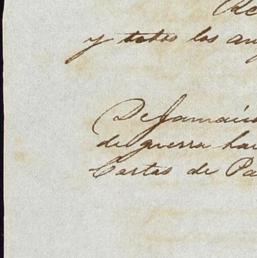 Re
y todos los an
De Jamaic
de guerra ha
Cartas de Pa